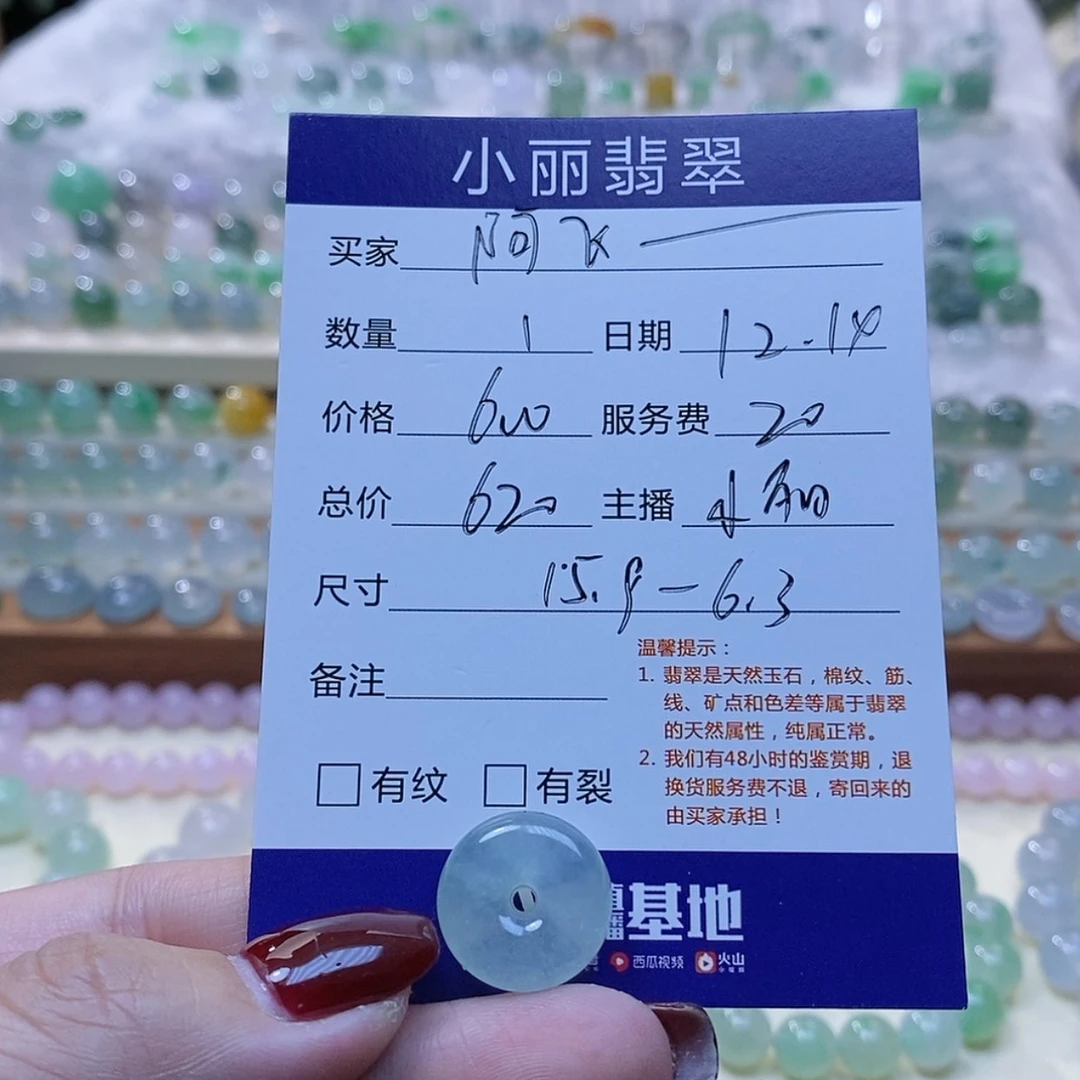 小丽翡翠
买家 阿飞
数量 1 日期 12.14
价格 600 服务费 20
总价 620 主播 小丽
尺寸 15.9-6.3
备注
温馨提示：
1. 翡翠是天然玉石，棉纹、筋、
线、矿点和色差等属于翡翠
的天然属性，纯属正常。
2. 我们有48小时的鉴赏期，退
换货服务费不退，寄回来的
由买家承担！
有纹 有裂
播基地
西瓜视频 火山